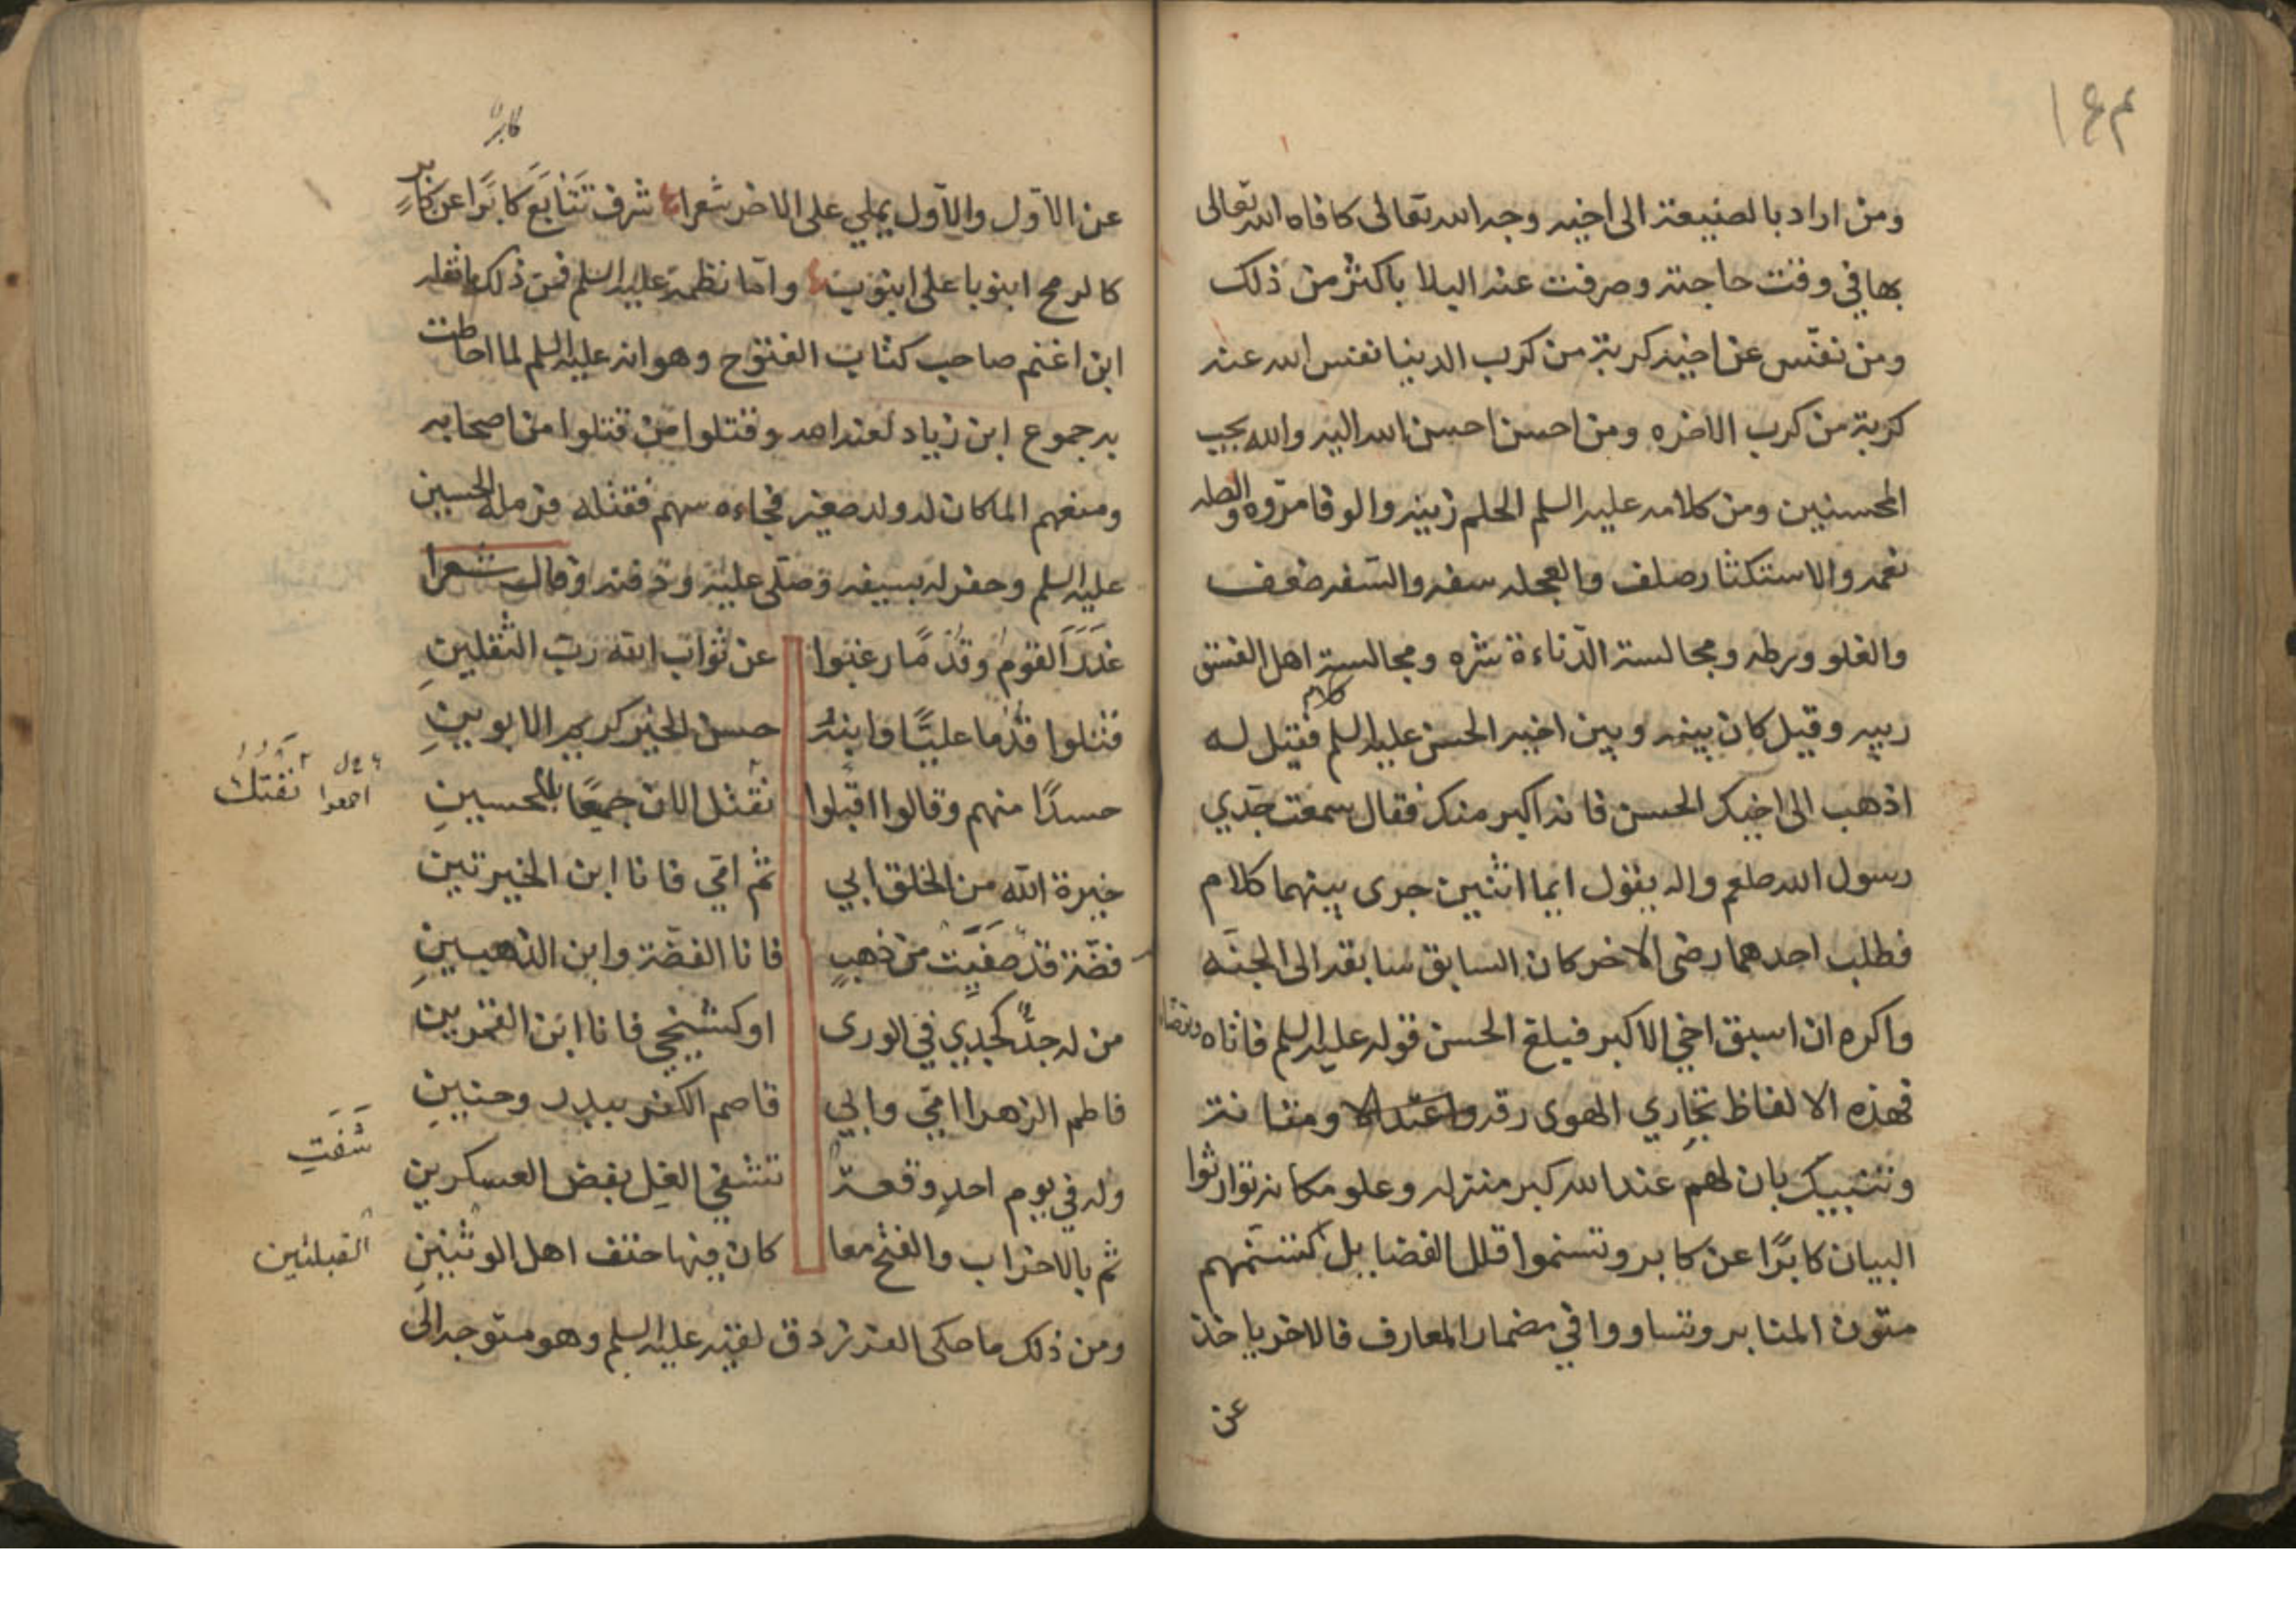 ومن اراد بالصنيعة الى اخيه وجه الله تعالى كافاه الله تعالى
بها في وقت حاجته وصرفت عنه البلا باكثر من ذلك
ومن نفّس عن اخيه كربة من كرب الدنيا نفس الله عنه
كربة من كرب الاخره ومن احسن احسن الله اليه والله يحب
المحسنين ومن كلامه عليه السلم الحلم زينه والوفا مروه والصله
نعمه والاستكثار صلف والعجله سفه والسفه ضعف
والغلو ورطه ومجالسة الدّناءة شره ومجالسة اهل الفسق
ريبه وقيل كان بينه وبين اخيه الحسن عليه السلم كلام فقيل له
اذهب الى اخيك الحسن فانه اكبر منك فقال سمعت جدي
رسول الله صلعم واله يقول ايما اثنين جرى بينهما كلام
فطلب احدهما رضى الاخر كان السابق سابقه الى الجنه
واكره ان اسبق اخي الاكبر فبلغ الحسن قوله عليه السلم فاتاه وترضاه
فهذه الالفاظ تجاري الهوى رقه واعتدالا ومتانة
وتنبيك بان لهم عند الله كبر منزله وعلو مكانه توارثوا
البيان كابرًا عن كابر وتسنموا قلل الفضايل كتسنمهم
متون المنابر وتساووا في مضمار المعارف فالاخر ياخذ
عن
كابرا
عن الاول والاول يملي على الاخر شعرا شرف تتابع كابرًا عن كابرٍ
كالرمح انبوبا على انبوب واما نظمه عليه السلم فمن ذلك ما نقله
ابن اعثم صاحب كتاب الفتوح وهو انه عليه السلم لما احاطت
به جموع ابن زياد لعنه الله وقتلوا من قتلوا من اصحابه
ومنعهم الما كان له ولد صغير فجاءه سهم فقتله فزمله الحسين
عليه السلم وحفر له بسيفه وصلى عليه ودفنه وقال شعرا
غَدَرَ القوم وقدمًا رغبوا عن ثواب الله رب الثقلينِ
قتلوا قدما عليًّا وابنه حسن الخير كريم الابوينِ
حسدًا منهم وقالوا اقبلوا نقتل الان جميعًا بالحسينِ
اجمعوا نفتك
خيرة الله من الخلق ابي ثم امي فانا ابن الخيرتين
فضة قد صفيت من ذهبٍ فانا الفضة وابن الذهبينِ
من له جدٌّ كجدي في الورى او كشيخي فانا ابن القمرين
فاطم الزهرا امي وابي قاصم الكفر ببدر وحنينِ
وله في يوم احدٍ وقعة تشفي الغل بفض العسكرين
شَفَتِ
ثم بالاحزاب والفتح معا كان فيها حتف اهل الوثنينِ
القبلتين
ومن ذلك ما حكى الفرزدق لقيه عليه السلم وهو متوجه الى